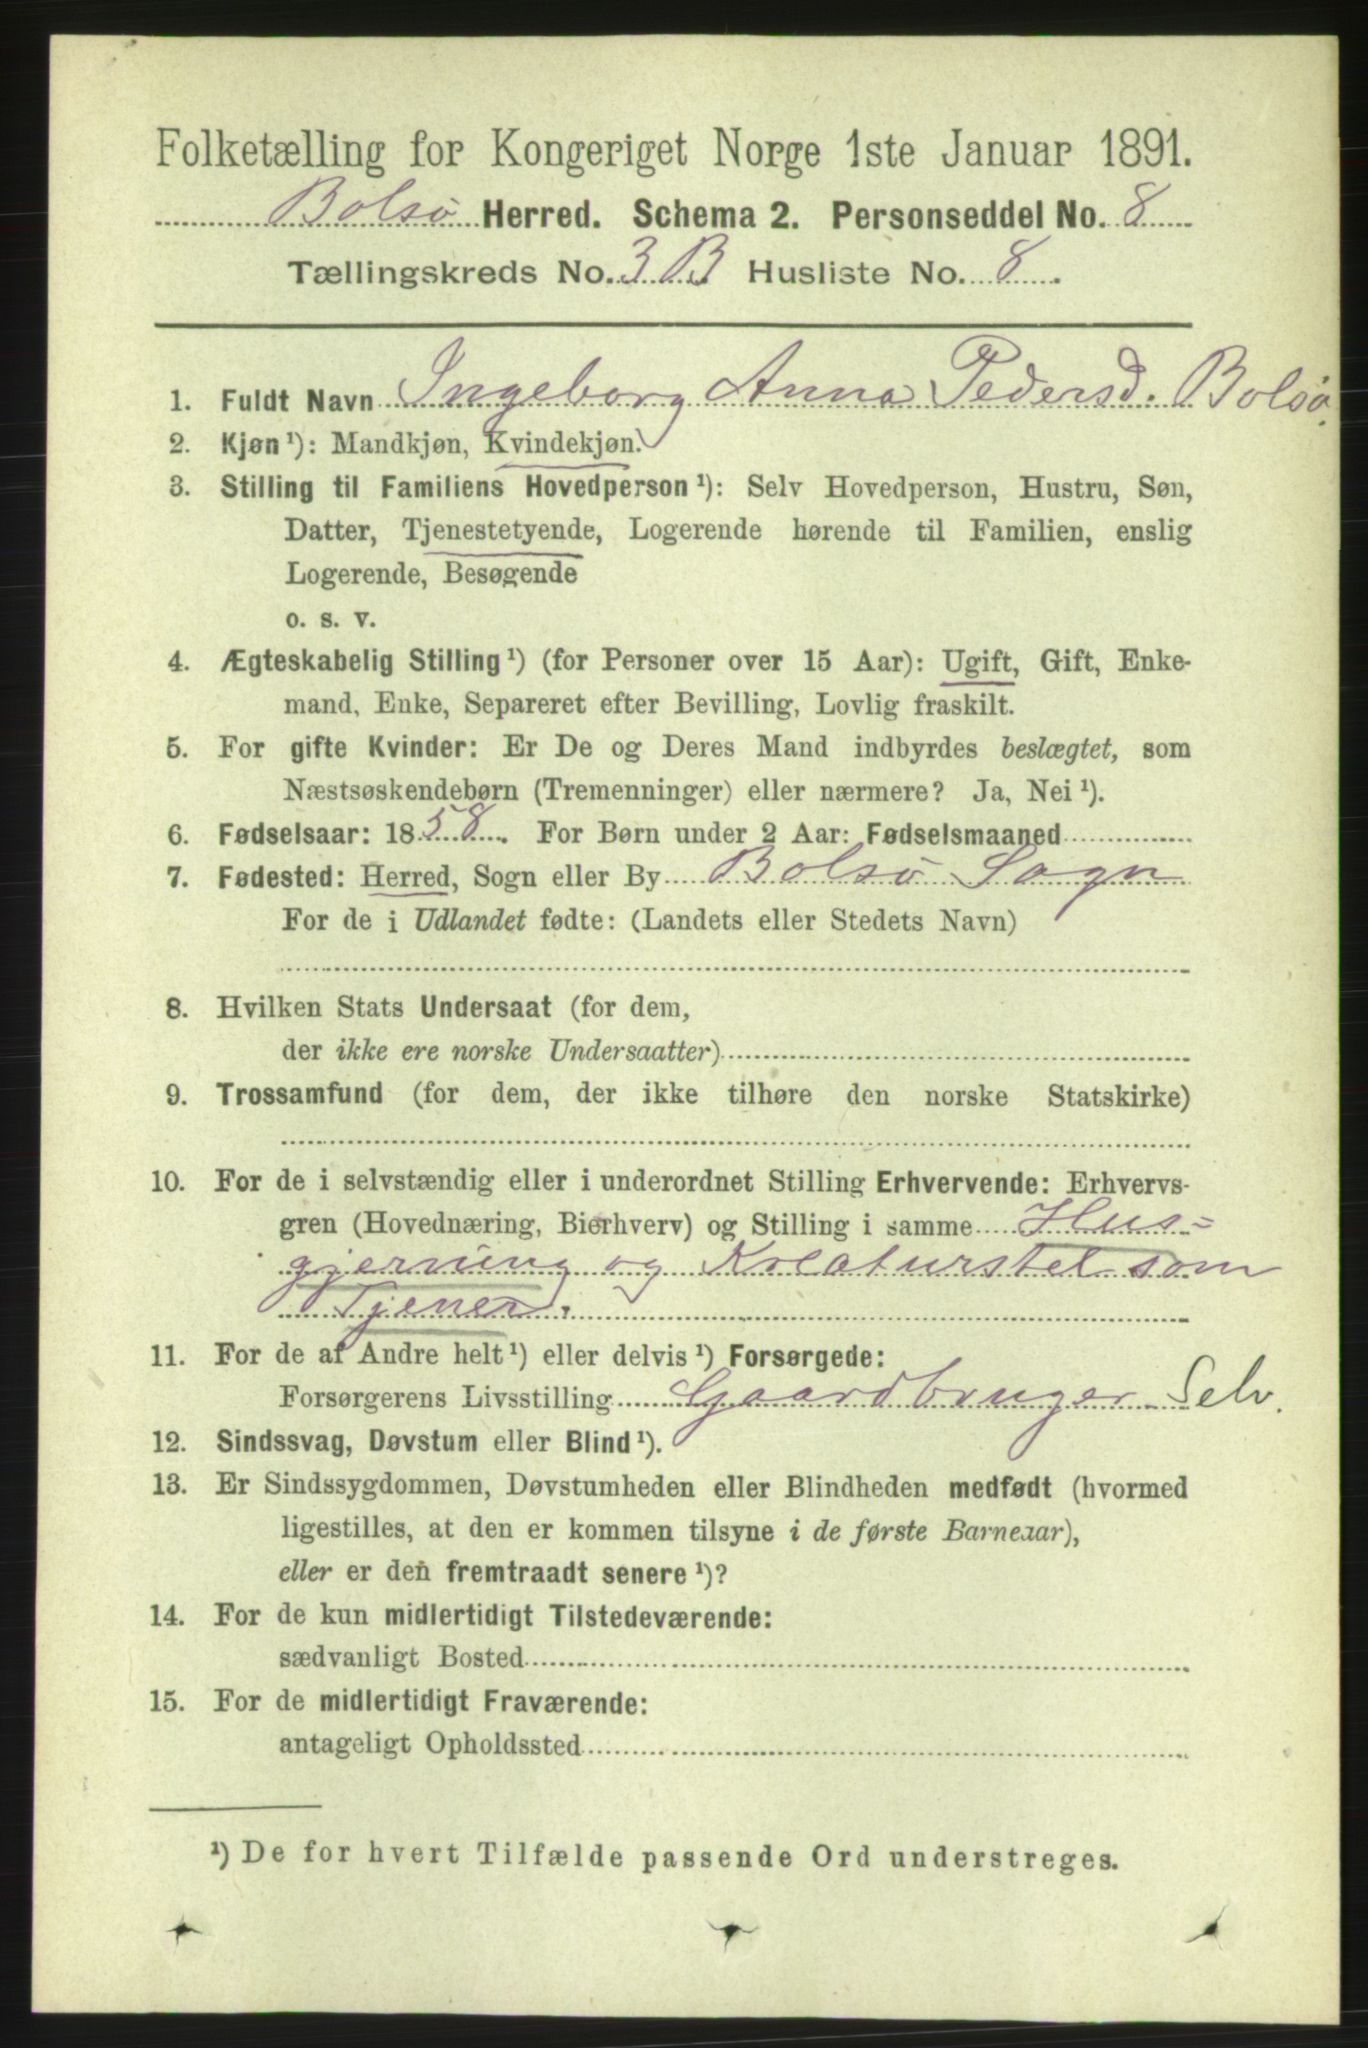 Folketælling for Kongeriget Norge 1ste Januar 1891.
Bolsø Herred. Schema 2. Personseddel No. 8
Tællingskreds No. 3 B Husliste No. 8.
1. Fuldt Navn Ingeborg Anna Pedersd. Bolsø.
2. Kjøn ¹): Mandkjøn, Kvindekjøn.
3. Stilling til Familiens Hovedperson ¹): Selv Hovedperson, Hustru, Søn,
Datter, Tjenestetyende, Logerende hørende til Familien, enslig
Logerende, Besøgende
o. s. v.
4. Ægteskabelig Stilling ¹) (for Personer over 15 Aar): Ugift, Gift, Enke-
mand, Enke, Separeret efter Bevilling, Lovlig fraskilt.
5. For gifte Kvinder: Er De og Deres Mand indbyrdes beslægtet, som
Næstsøskendebørn (Tremenninger) eller nærmere? Ja, Nei ¹).
6. Fødselsaar: 1858. For Børn under 2 Aar: Fødselsmaaned
7. Fødested: Herred, Sogn eller By Bolsø Sogn
For de i Udlandet fødte: (Landets eller Stedets Navn)
8. Hvilken Stats Undersaat (for dem,
der ikke ere norske Undersaatter)
9. Trossamfund (for dem, der ikke tilhøre den norske Statskirke)
10. For de i selvstændig eller i underordnet Stilling Erhvervende: Erhvervs-
gren (Hovednæring, Bierhverv) og Stilling i samme Hus=
gjerning og Kreaturstel som
Tjener.
11. For de af Andre helt ¹) eller delvis ¹) Forsørgede:
Forsørgerens Livsstilling Gaardbruger Selv.
12. Sindssvag, Døvstum eller Blind ¹).
13. Er Sindssygdommen, Døvstumheden eller Blindheden medfødt (hvormed
ligestilles, at den er kommen tilsyne i de første Barneaar),
eller er den fremtraadt senere ¹)?
14. For de kun midlertidigt Tilstedeværende:
sædvanligt Bosted
15. For de midlertidigt Fraværende:
antageligt Opholdssted
¹) De for hvert Tilfælde passende Ord understreges.